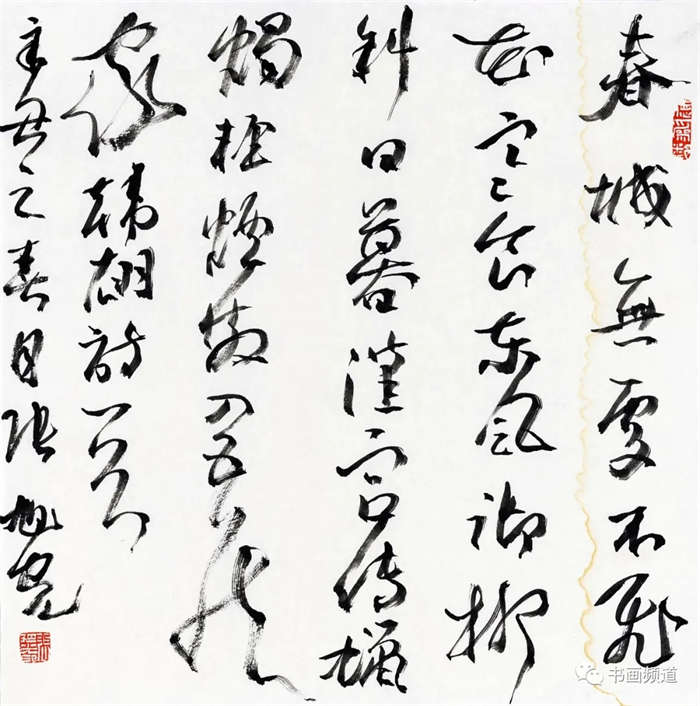 春城無處不飛
花寒食東風御柳
斜日暮漢宫傳蠟
燭輕煙散入五侯
家韓翃詩一首
辛丑之春月張旭光
书画频道